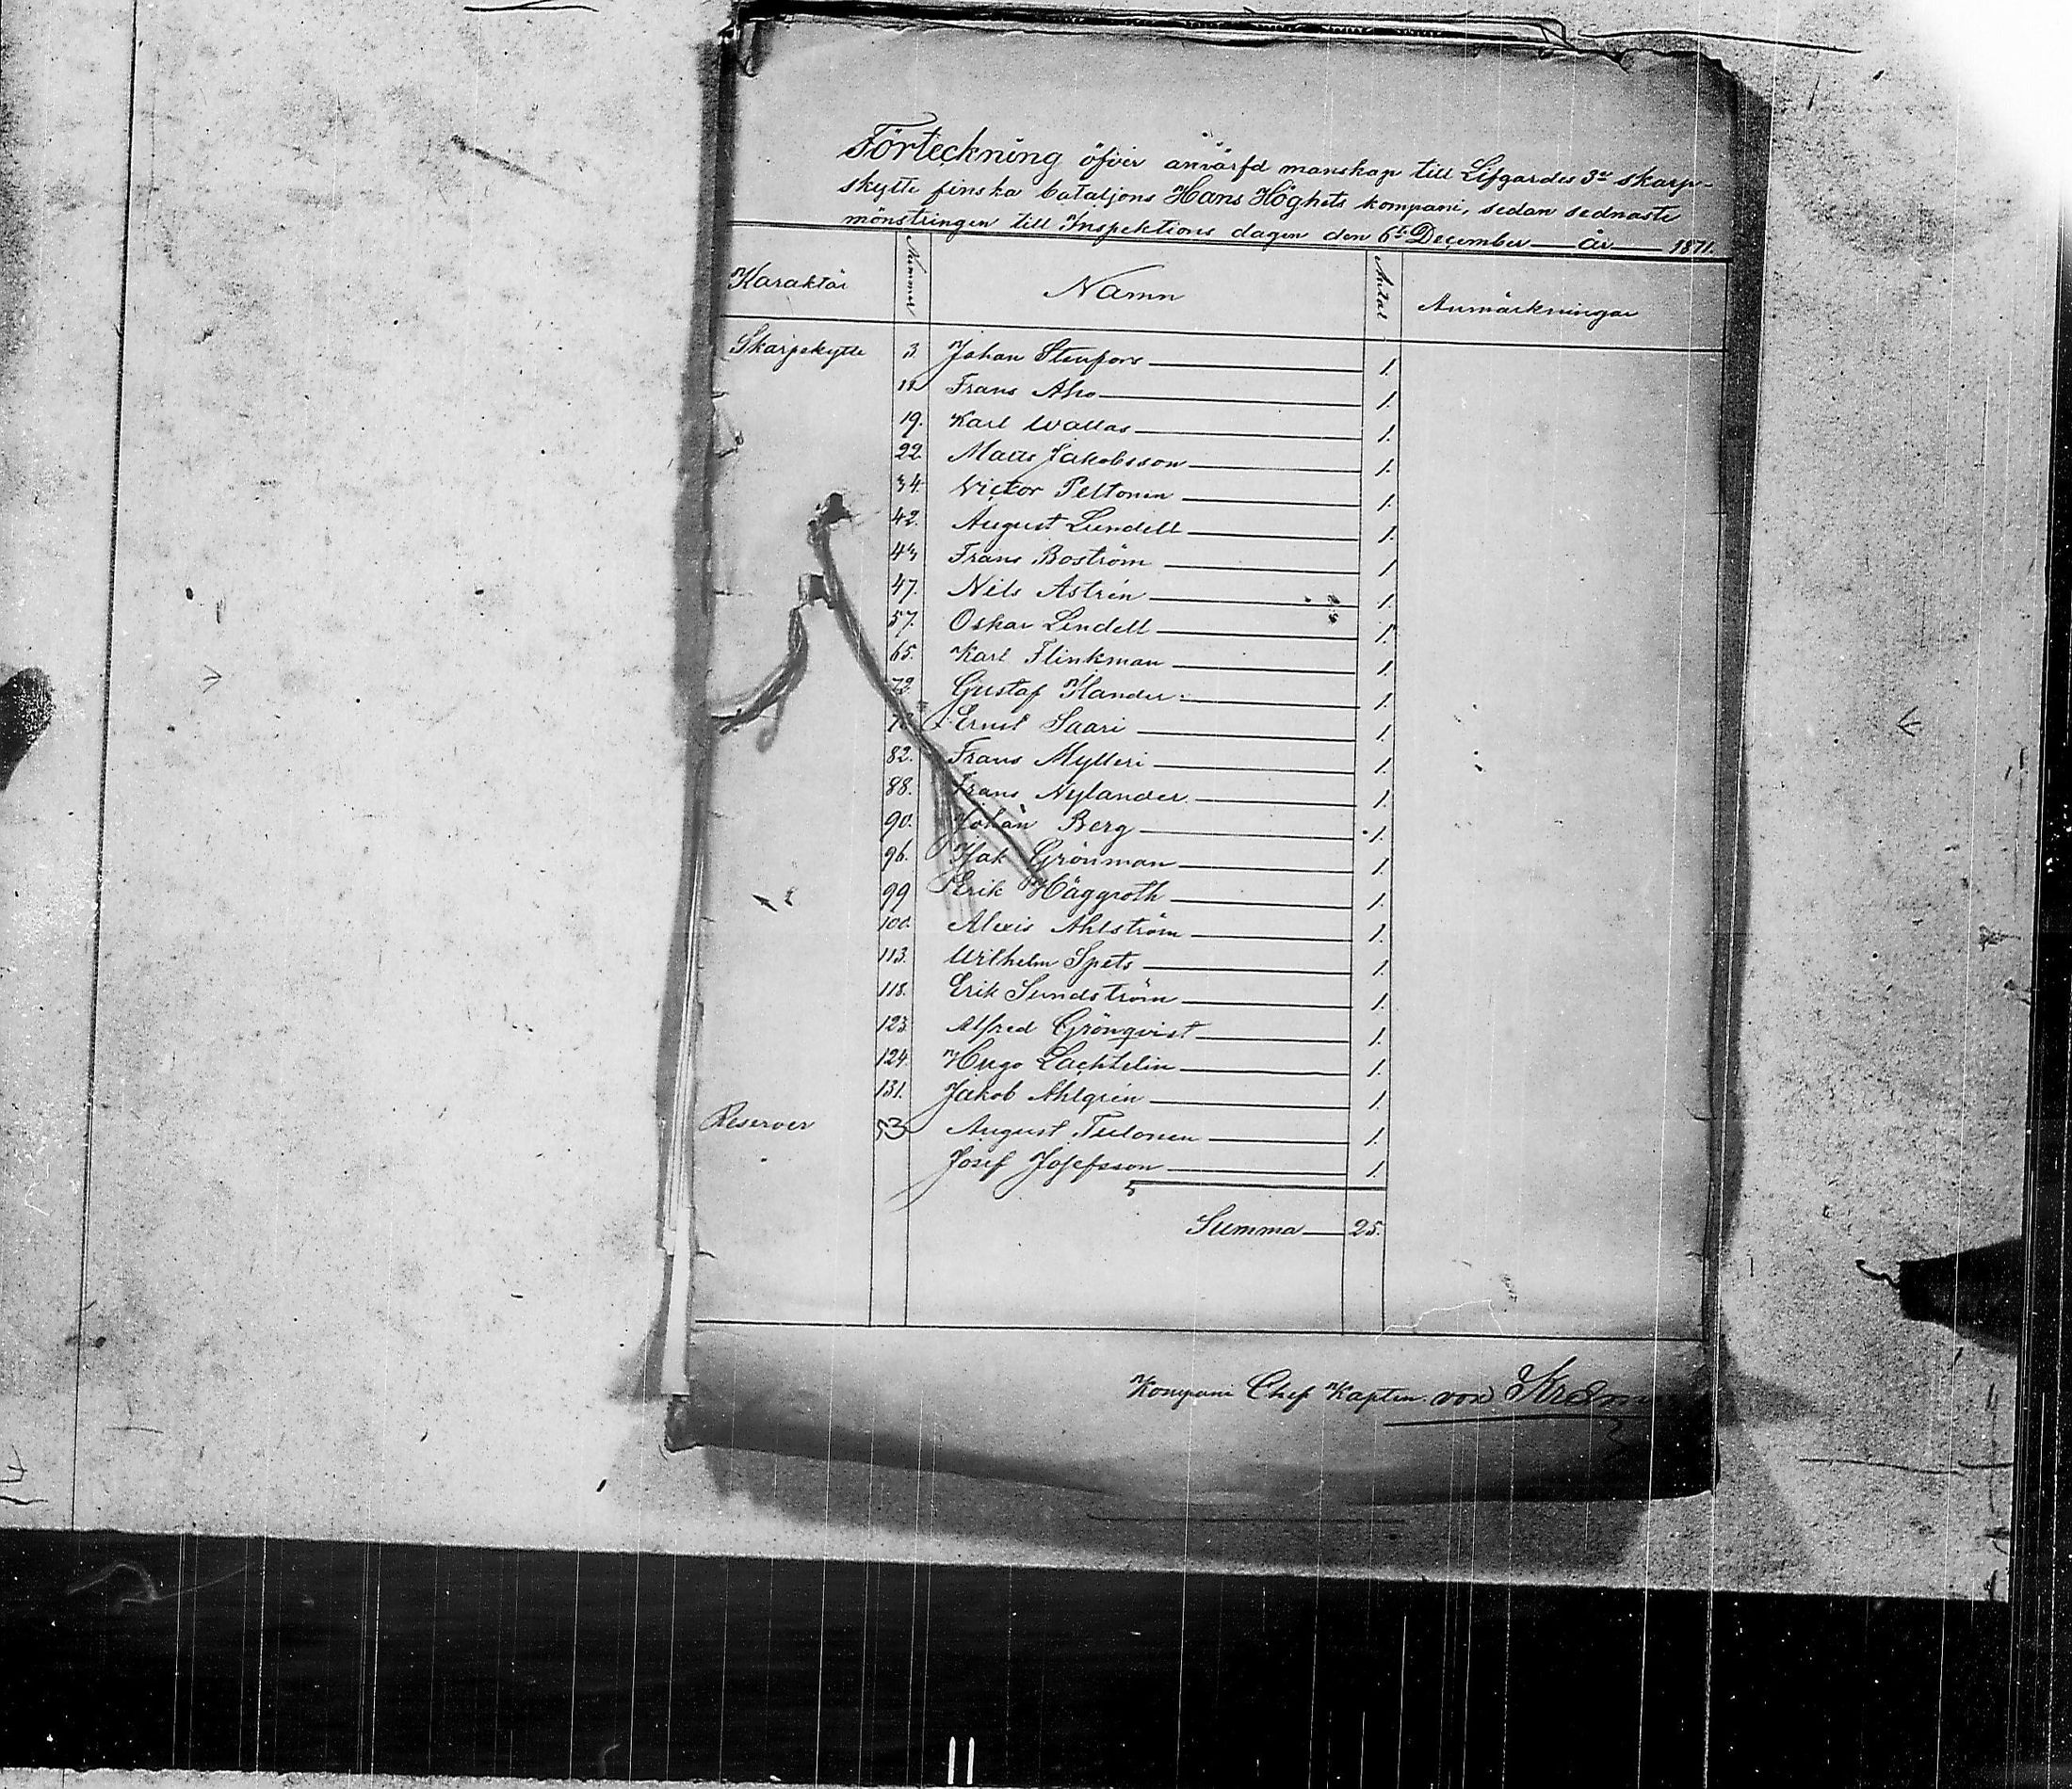 Förteckning öfver anvärfd manskap till Lifgardes 3e skarp-
skytte finska bataljons Hans Höghets kompani, sedan sednaste
mönstringen till Inspektions dagen den 6te December år 1871.
Karaktär Nummer Namn Antal Anmärkningar
Skarpskytte 3. Johan Stenfors 1.
11 Frans Aho 1.
19. Karl Wallas 1.
22. Matts Jakobsson 1.
34. Victor Peltonen 1.
42. August Lundell 1.
43 Frans Boström 1
47. Nils Astrén 1.
57. Oskar Lindell 1.
65. Karl Flinkman 1.
72. Gustaf Ilander 1.
Ernst Saari 1.
82. Frans Mylleri 1.
88. Frans Nylander 1.
90. Johan Berg 1.
96. Isak Grönman 1.
99 Erik Häggroth 1.
100. Alexis Ahlström 1.
113. Wilhelm Spets 1.
118. Erik Sundström 1.
123. Alfred Grönqvist 1.
124. Hugo Lachtelin 1.
131. Jakob Ahlgrén 1.
Reserver August Tulonen 1.
Josef Josefsson 1.
Summa 25.
Kompani Chef Kapten von